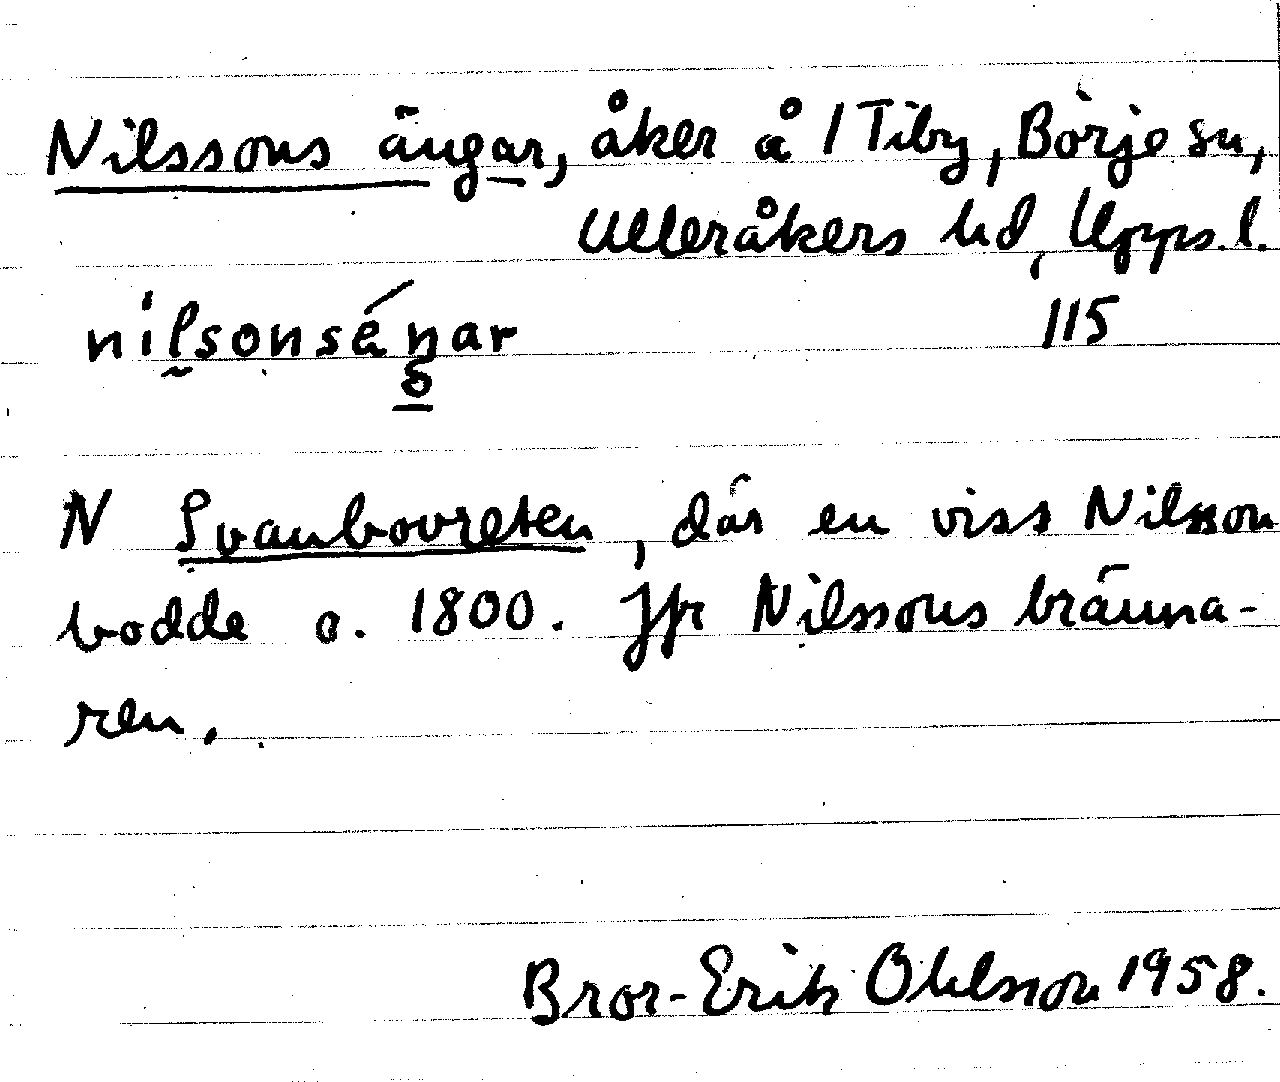 Nilssons ängar, åker å 1 Tiby, Börje sn,
Ulleråkers hd, Upps. l.
nilsonséŋar 115
N Svanbovreten, där en viss Nilsson
bodde o. 1800. Jfr Nilssons bränna-
ren.
Bror-Erik Ohlsson 1958.